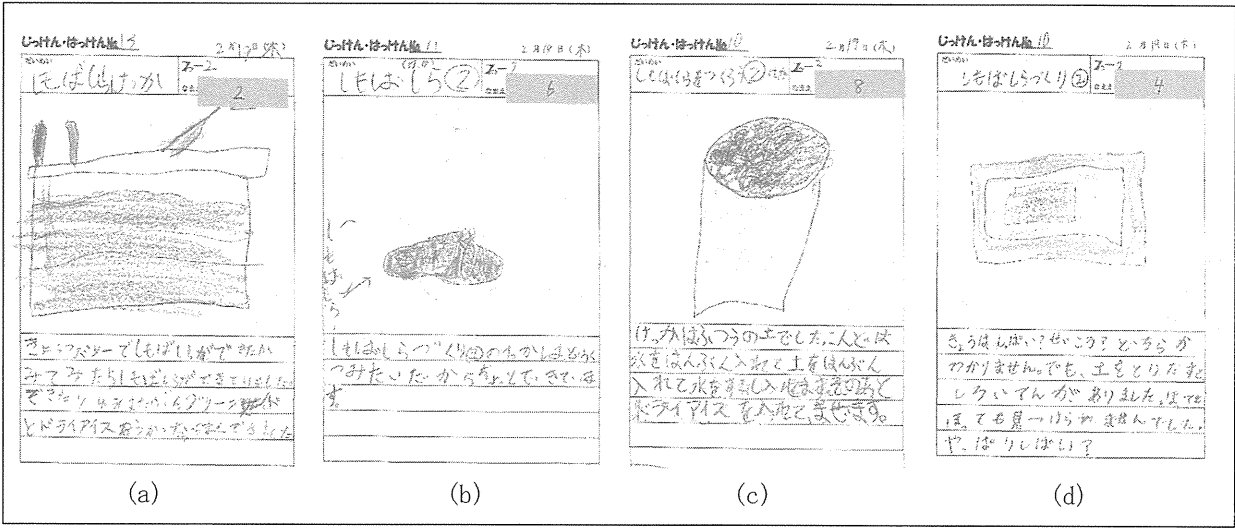 じっけん・はっけん№13
2月19日(木)
だいめい
しもばしらけっか
2-2
なまえ
2
きょうフベリーでしもばしらができたか
みてみたらしもばしらができてりました
とドライアイスをつかった
(a)
じっけん・はっけん№11
2月19日(木)
しもばしら②
2-2
6
しもばしら
しもばしらづくり②のけっかは
つみたいだからちょっとできていま
す。
(b)
じっけん・はっけん№10
2月19日(木)
だいめい
しもばしらをつくろう②
2-2
なまえ
8
けっかはふつうの土でした。こんどは
氷をはんぶん入れて土をはんぶん
入れて水をすこし入れます
ドライアイスを入れてませます。
(c)
じっけん・はっけん№10
2月19日(木)
だいめい
しもばしらづくり②
2-2
なまえ
4
きょうはしっぱい?せいこう?どちらか
わかりません。でも、土をとりだすと
しろいてんがありました。ほっても
ほっても見つけられませんでした。
やっぱりしっぱい?
(d)